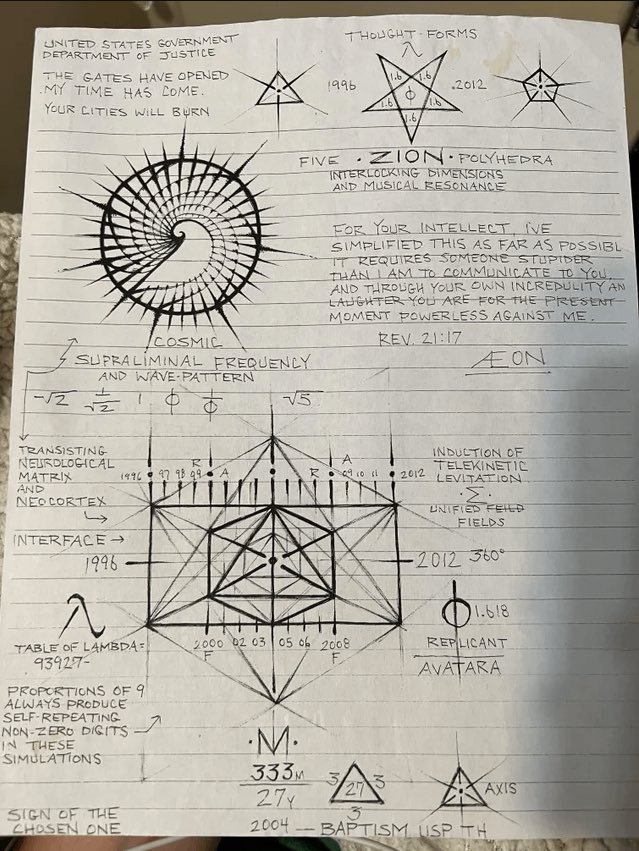 UNITED STATES GOVERNMENT
DEPARTMENT OF JUSTICE
THE GATES HAVE OPENED
MY TIME HAS COME.
YOUR CITIES WILL BURN
THOUGHT-FORMS
λ
1996
1.6
1.6
1.6
1.6
1.6
ϕ
.2012
FIVE • ZION • POLYHEDRA
INTERLOCKING DIMENSIONS
AND MUSICAL RESONANCE
FOR YOUR INTELLECT, I'VE
SIMPLIFIED THIS AS FAR AS POSSIBL
IT REQUIRES SOMEONE STUPIDER
THAN I AM TO COMMUNICATE TO YOU,
AND THROUGH YOUR OWN INCREDULITY AN
LAUGHTER YOU ARE FOR THE PRESENT
MOMENT POWERLESS AGAINST ME.
REV. 21:17
ÆON
COSMIC
SUPRALIMINAL FREQUENCY
AND WAVE-PATTERN
-√2 1/√2 1 ϕ 1/ϕ √5
TRANSISTING
NEUROLOGICAL
MATRIX
AND
NEOCORTEX
R A R A
1996 97 98 99 09 10 11 2012
INDUCTION OF
TELEKINETIC
LEVITATION
·Σ·
UNIFIED FEILD
FIELDS
INTERFACE →
1996
2012 360°
λ
TABLE OF LAMBDA=
93927-
2000 02 03 05 06 2008
F F
ϕ 1.618
REPLICANT
AVATARA
PROPORTIONS OF 9
ALWAYS PRODUCE
SELF-REPEATING
NON-ZERO DIGITS
IN THESE
SIMULATIONS
·M·
333M
27Y
3 27 3
3
AXIS
SIGN OF THE
CHOSEN ONE
2004 — BAPTISM USP TH